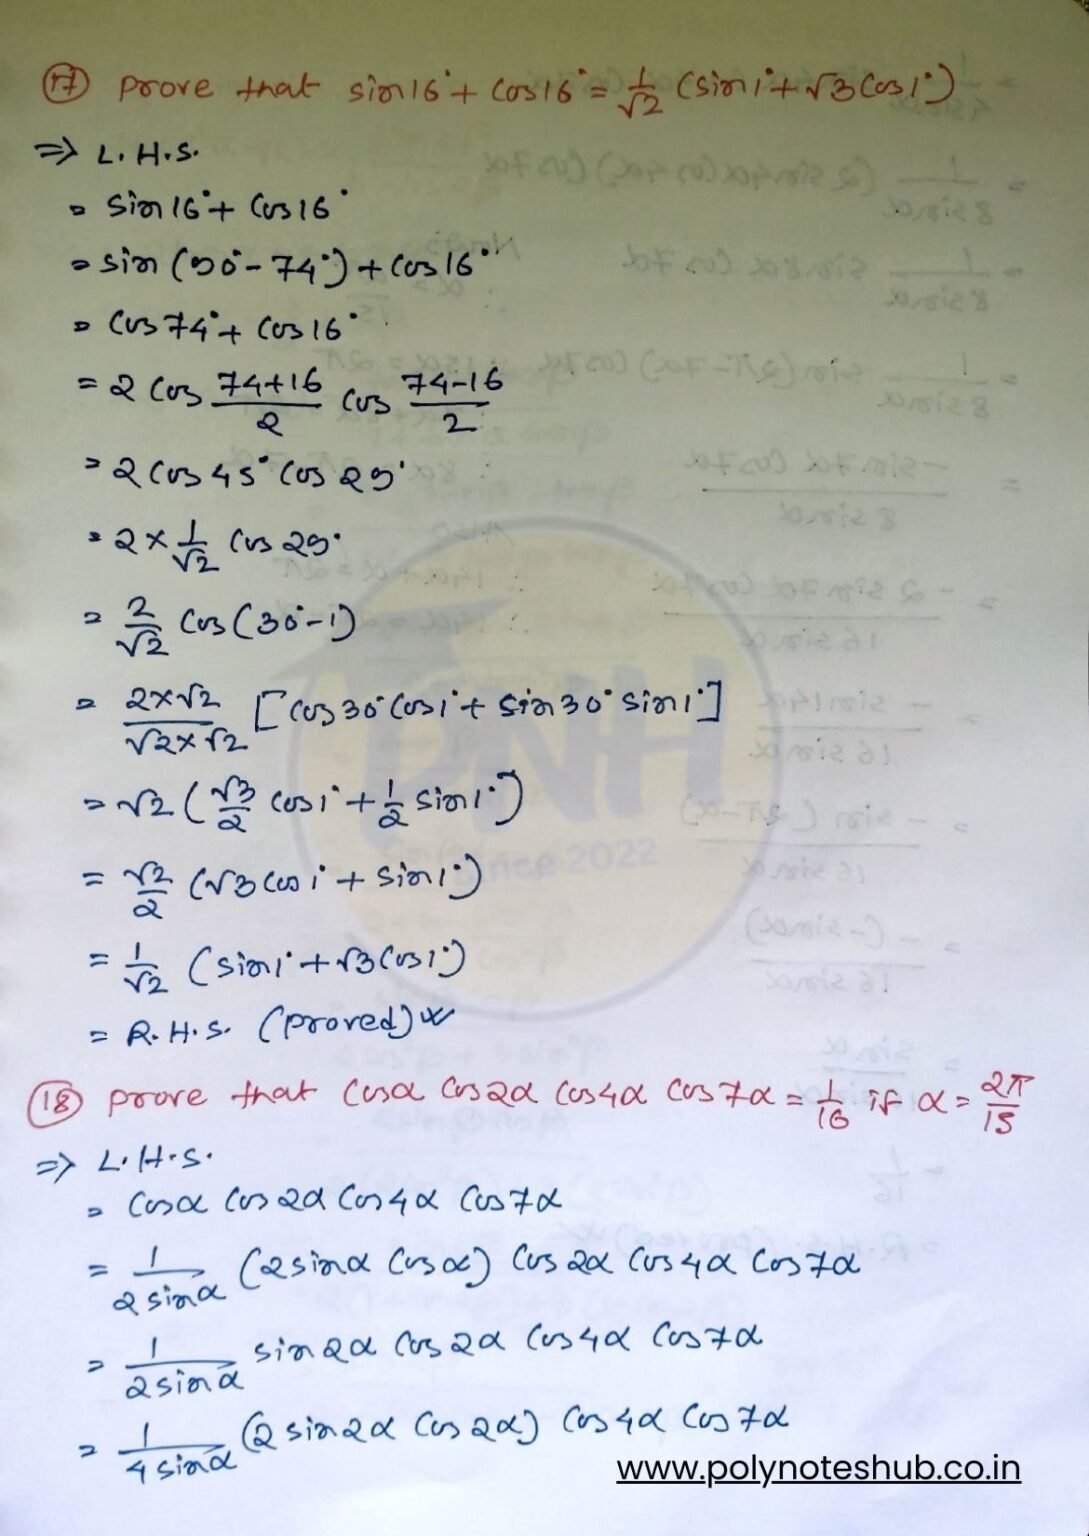 (17) prove that sin16° + cos16° = 1/√2 (sin1° + √3 cos1°)
=> L.H.S.
= sin16° + cos16°
= sin (90° - 74°) + cos16°
= cos74° + cos16°
= 2 cos (74+16)/2 cos (74-16)/2
= 2 cos45° cos29°
= 2 × 1/√2 cos29°
= 2/√2 cos(30° - 1)
= (2×√2)/(√2×√2) [cos30° cos1° + sin30° sin1°]
= √2 (√3/2 cos1° + 1/2 sin1°)
= √2/2 (√3 cos1° + sin1°)
= 1/√2 (sin1° + √3 cos1°)
= R.H.S. (proved)
(18) prove that cosα cos2α cos4α cos7α = 1/16 if α = 2π/15
=> L.H.S.
= cosα cos2α cos4α cos7α
= 1/(2 sinα) (2 sinα cosα) cos2α cos4α cos7α
= 1/(2 sinα) sin2α cos2α cos4α cos7α
= 1/(4 sinα) (2 sin2α cos2α) cos4α cos7α
PNH
Since 2022
www.polynoteshub.co.in